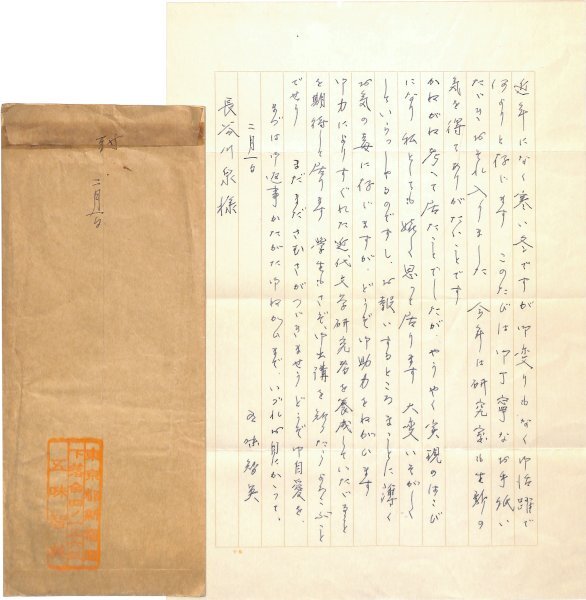 近年になく寒い冬ですが御変りもなく御活躍で
何よりと存じます このたびは御丁寧なお手紙い
たゞきおそれ入りました 今年は研究室も生新の
気を得てありがたいことです
かねがね考へて居たことでしたが、やうやく実現のはこび
になり私としても嬉しく思って居ります 大変いそがしく
していらっしゃるのですし、お報いするところまことに薄く
お気の毒に存じますが、どうぞ御助力をねがひます
御力によりすぐれた近代文学研究者を養成していたゞきたく
を期待して居ります 学生もさぞ御出講を
でせう まだまださむさがつゞきませう どうぞ御自愛を、
まづは御返事かたがた御ねがひまで いづれお目にかかって、
二月一日
五味智英
長谷川泉様
封
二月一日
東京都
五味智英